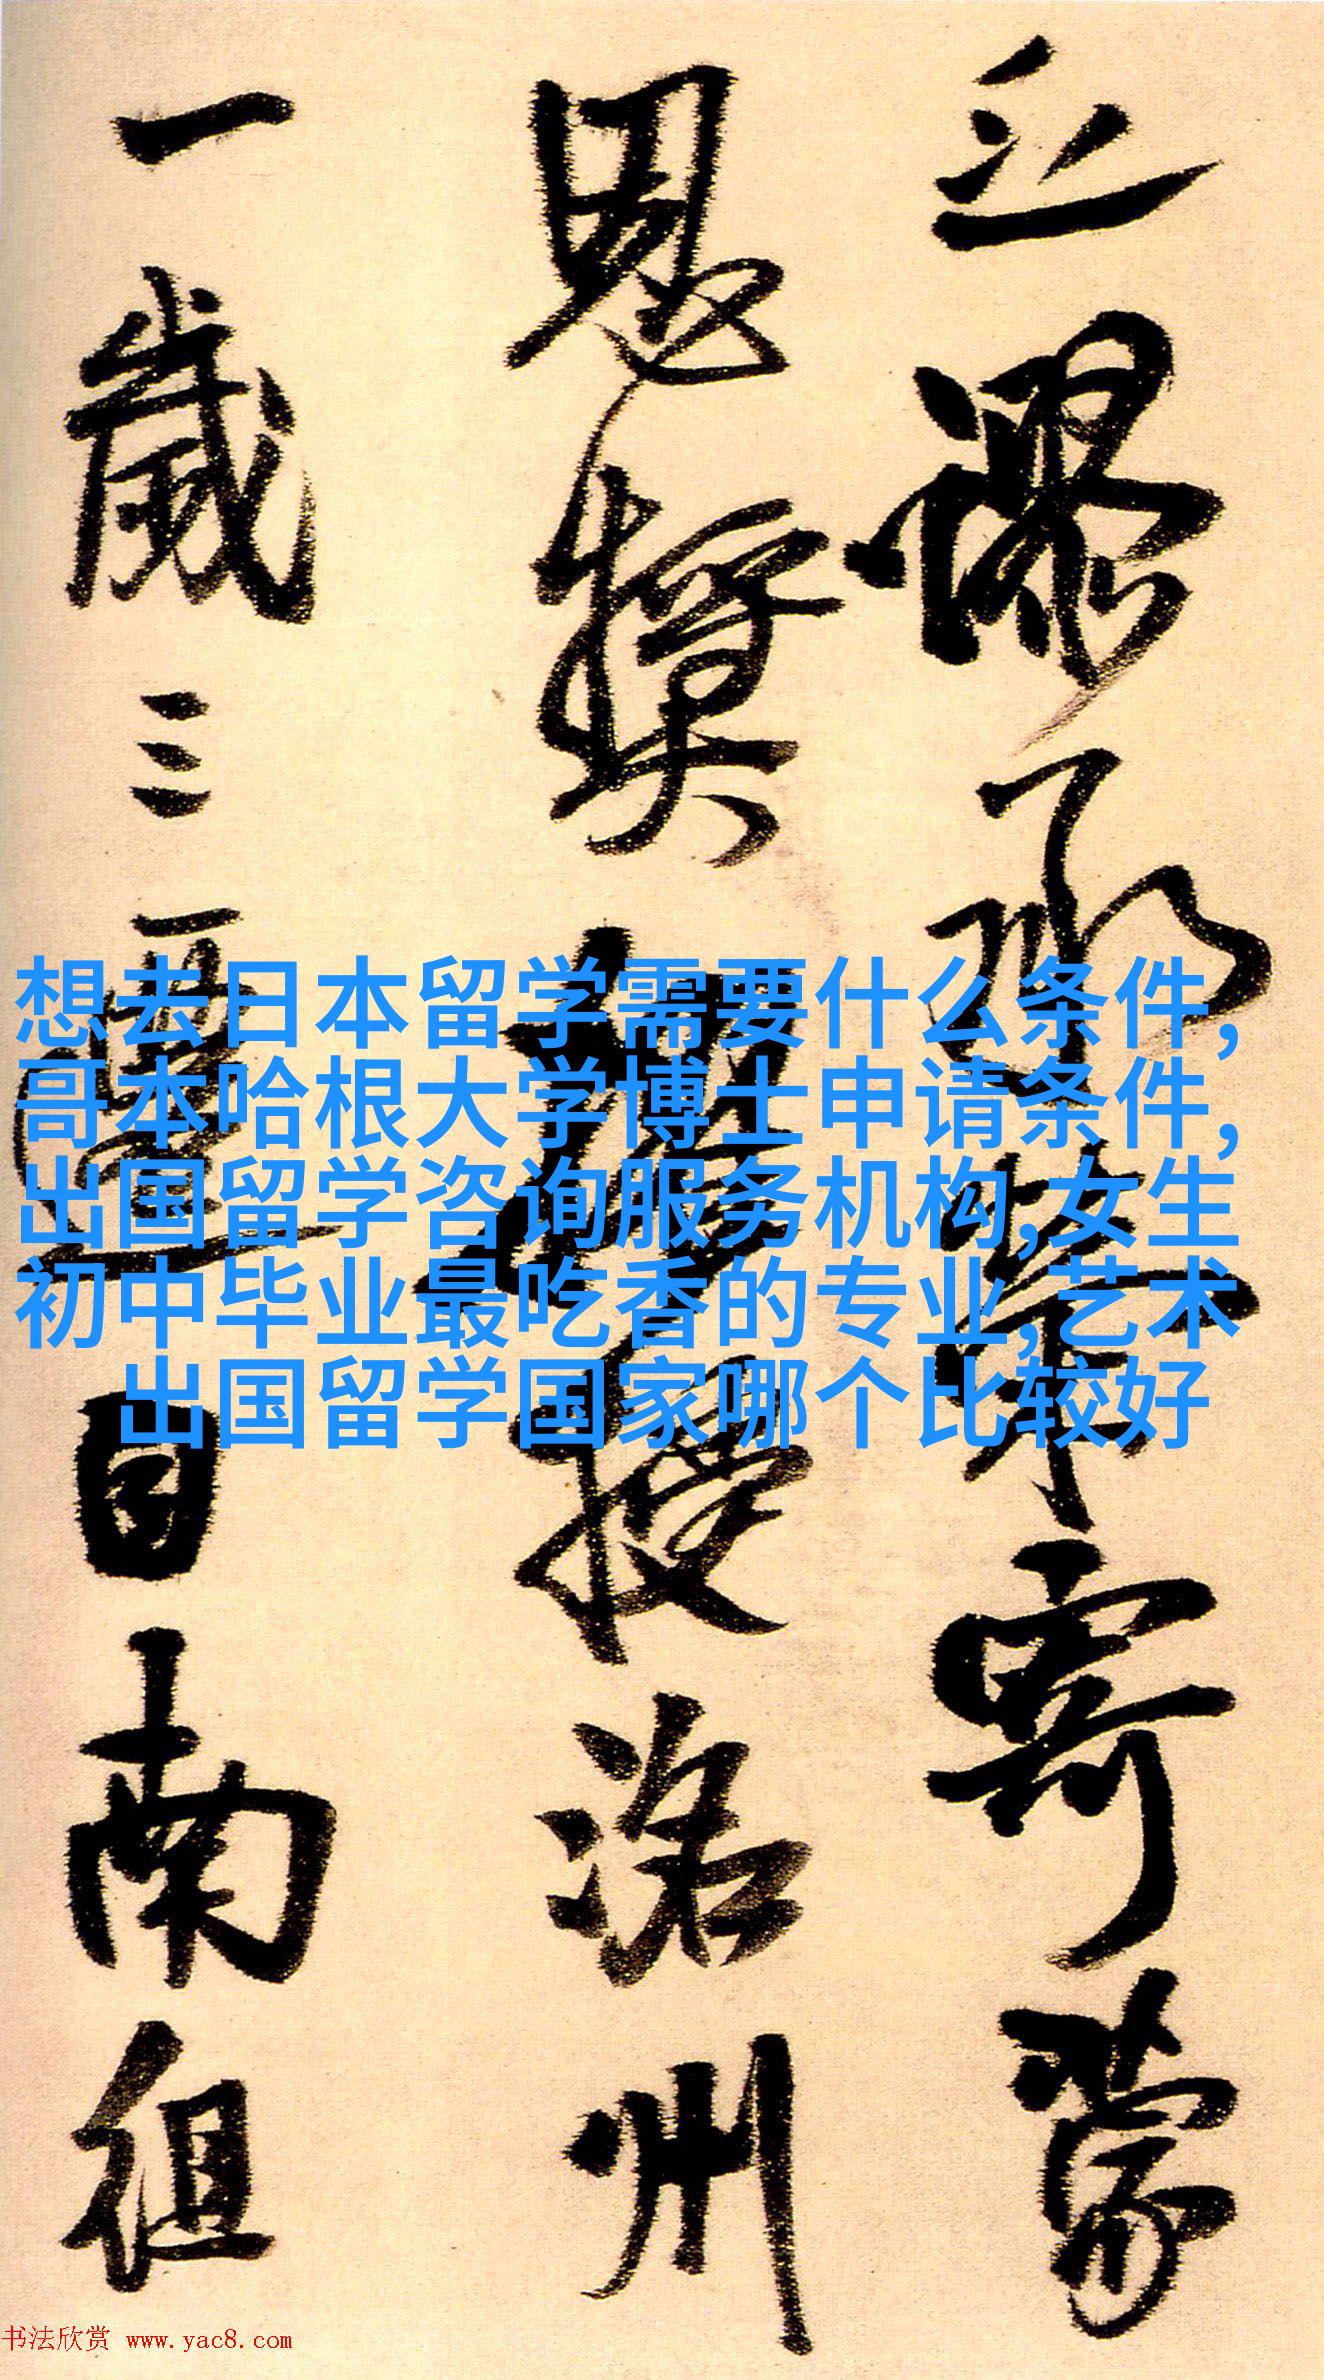 謬承榮寄蒙
恩獎授洛州
一歲三遷自南徂
想去日本留学需要什么条件,
哥本哈根大学博士申请条件,
出国留学咨询服务机构,女生
初中毕业最吃香的专业,艺术
出国留学国家哪个比较好
书法欣赏 www.yac8.com